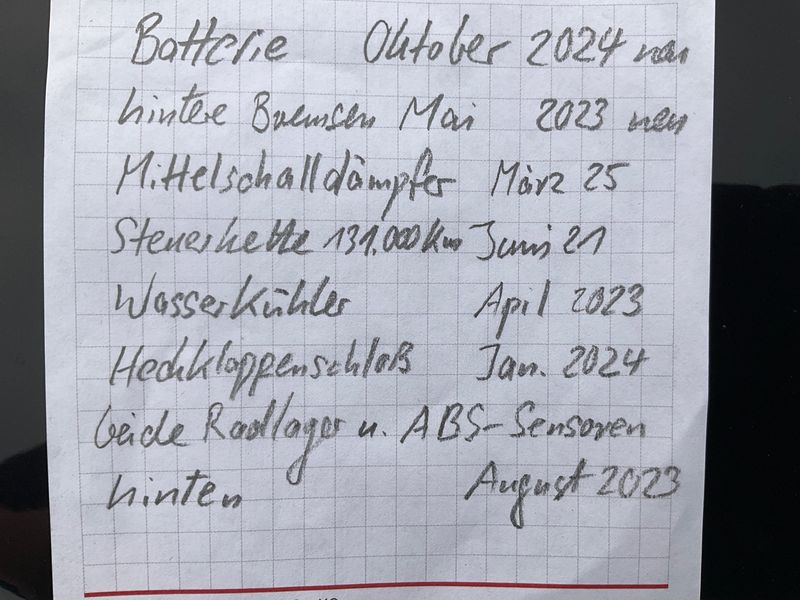 Batterie Oktober 2024 neu
hintere Bremsen Mai 2023 neu
Mittelschalldämpfer März 25
Steuerkette 131.000 Km Juni 21
Wasserkühler April 2023
Heckklappenschloß Jan. 2024
beide Radlager u. ABS-Sensoren
hinten August 2023